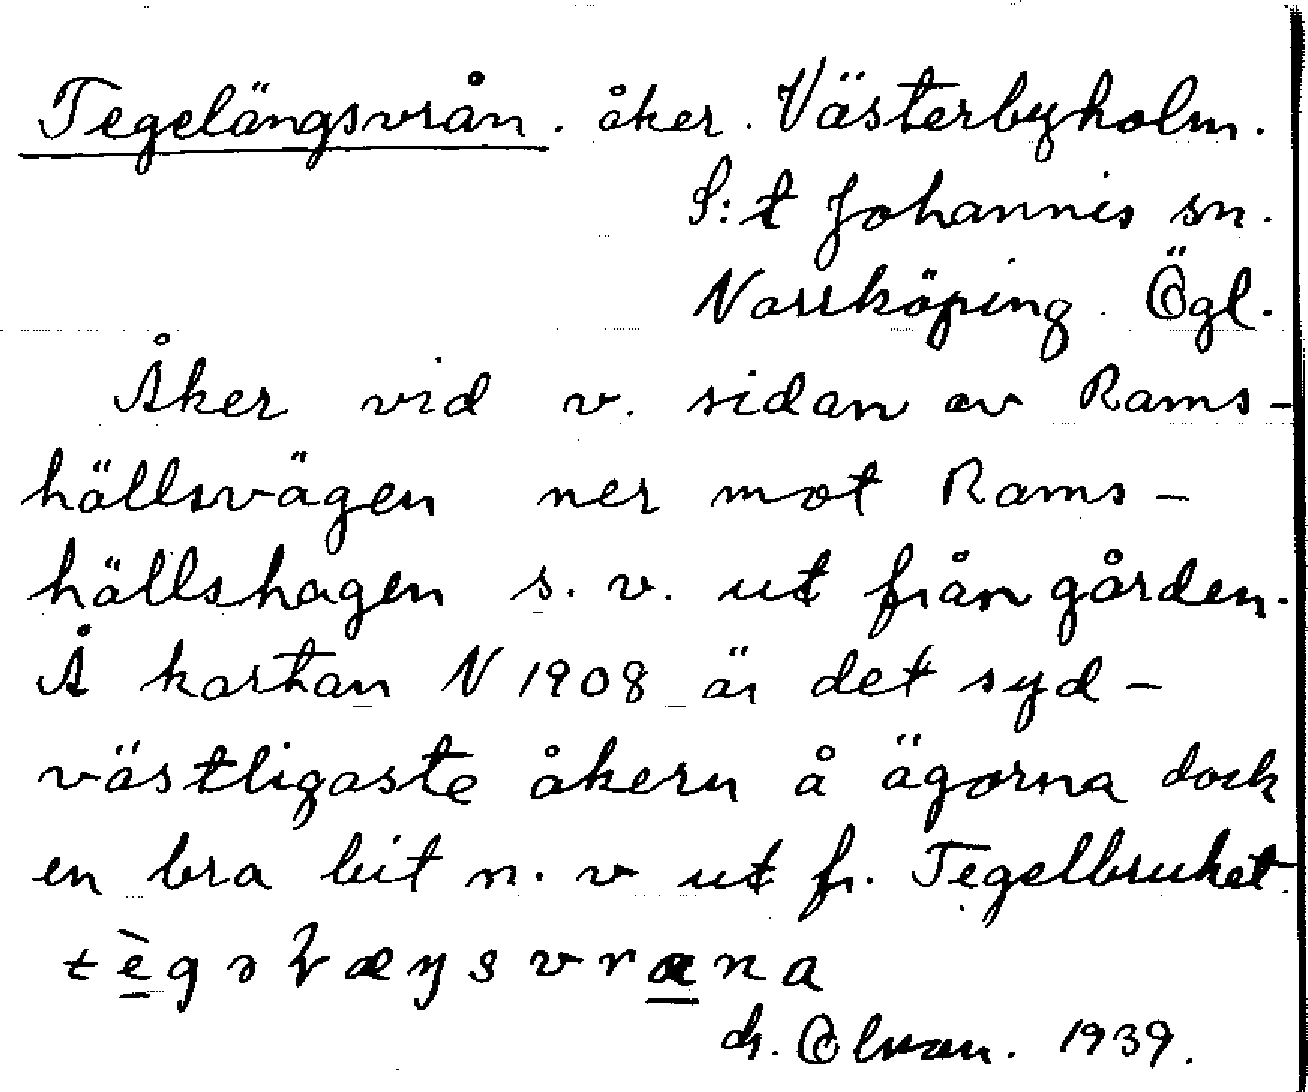 Tegelängsvrån. åker. Västerbyholm.
S:t Johannis sn.
Norrköping. Ögl.
Åker vid v. sidan av Rams-
hällsvägen ner mot Rams-
hällshagen s.v. ut från gården.
Å kartan N 1908 är det syd-
västligaste åkern å ägorna dock
en bra bit n.v ut fr. Tegelbruket
1939.